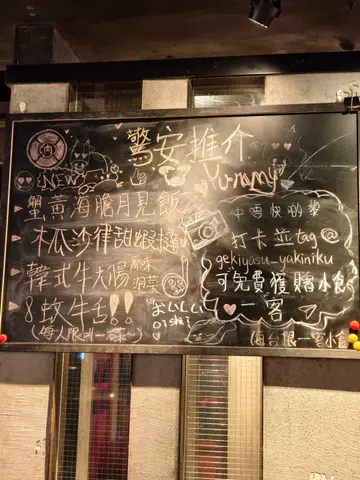 驚安推介
肉
NEW
Yummy
蟹黃海膽月見飯
木瓜沙律甜蝦撻
韓式牛大腸 原味 泡菜
8蚊牛舌!!
(每人限叫一碟)
おいしい
oishii
打卡並tag@
gekiyasu_yakiniku
可免費獲贈小食
一客
(每台限一客小食)